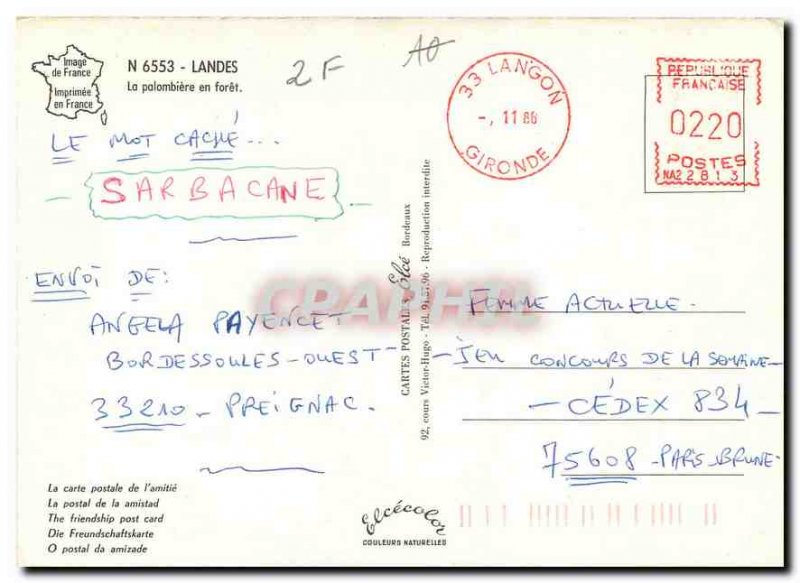 Image
de France
Imprimée
en France
N 6553 - LANDES
La palombière en forêt.
2 F
A0
33 LANGON
-, 11 86
GIRONDE
REPUBLIQUE
FRANCAISE
0220
POSTES
NA22813
LE MOT CACHÉ...
- SARBACANE -
ENVOI DE:
ANGELA PAYENCET
BORDESSOULES-OUEST
33210 - PREIGNAC.
CARTES POSTALES Elcé Bordeaux
92, cours Victor-Hugo - Tél. 91.57.96 - Reproduction interdite
CPARAMA
FEMME ACTUELLE -
- JEU CONCOURS DE LA SEMAINE -
- CÉDEX 834 -
75608 - PARIS - BRUNE -
La carte postale de l'amitié
La postal de la amistad
The friendship post card
Die Freundschaftskarte
O postal da amizade
Elcécolor
COULEURS NATURELLES